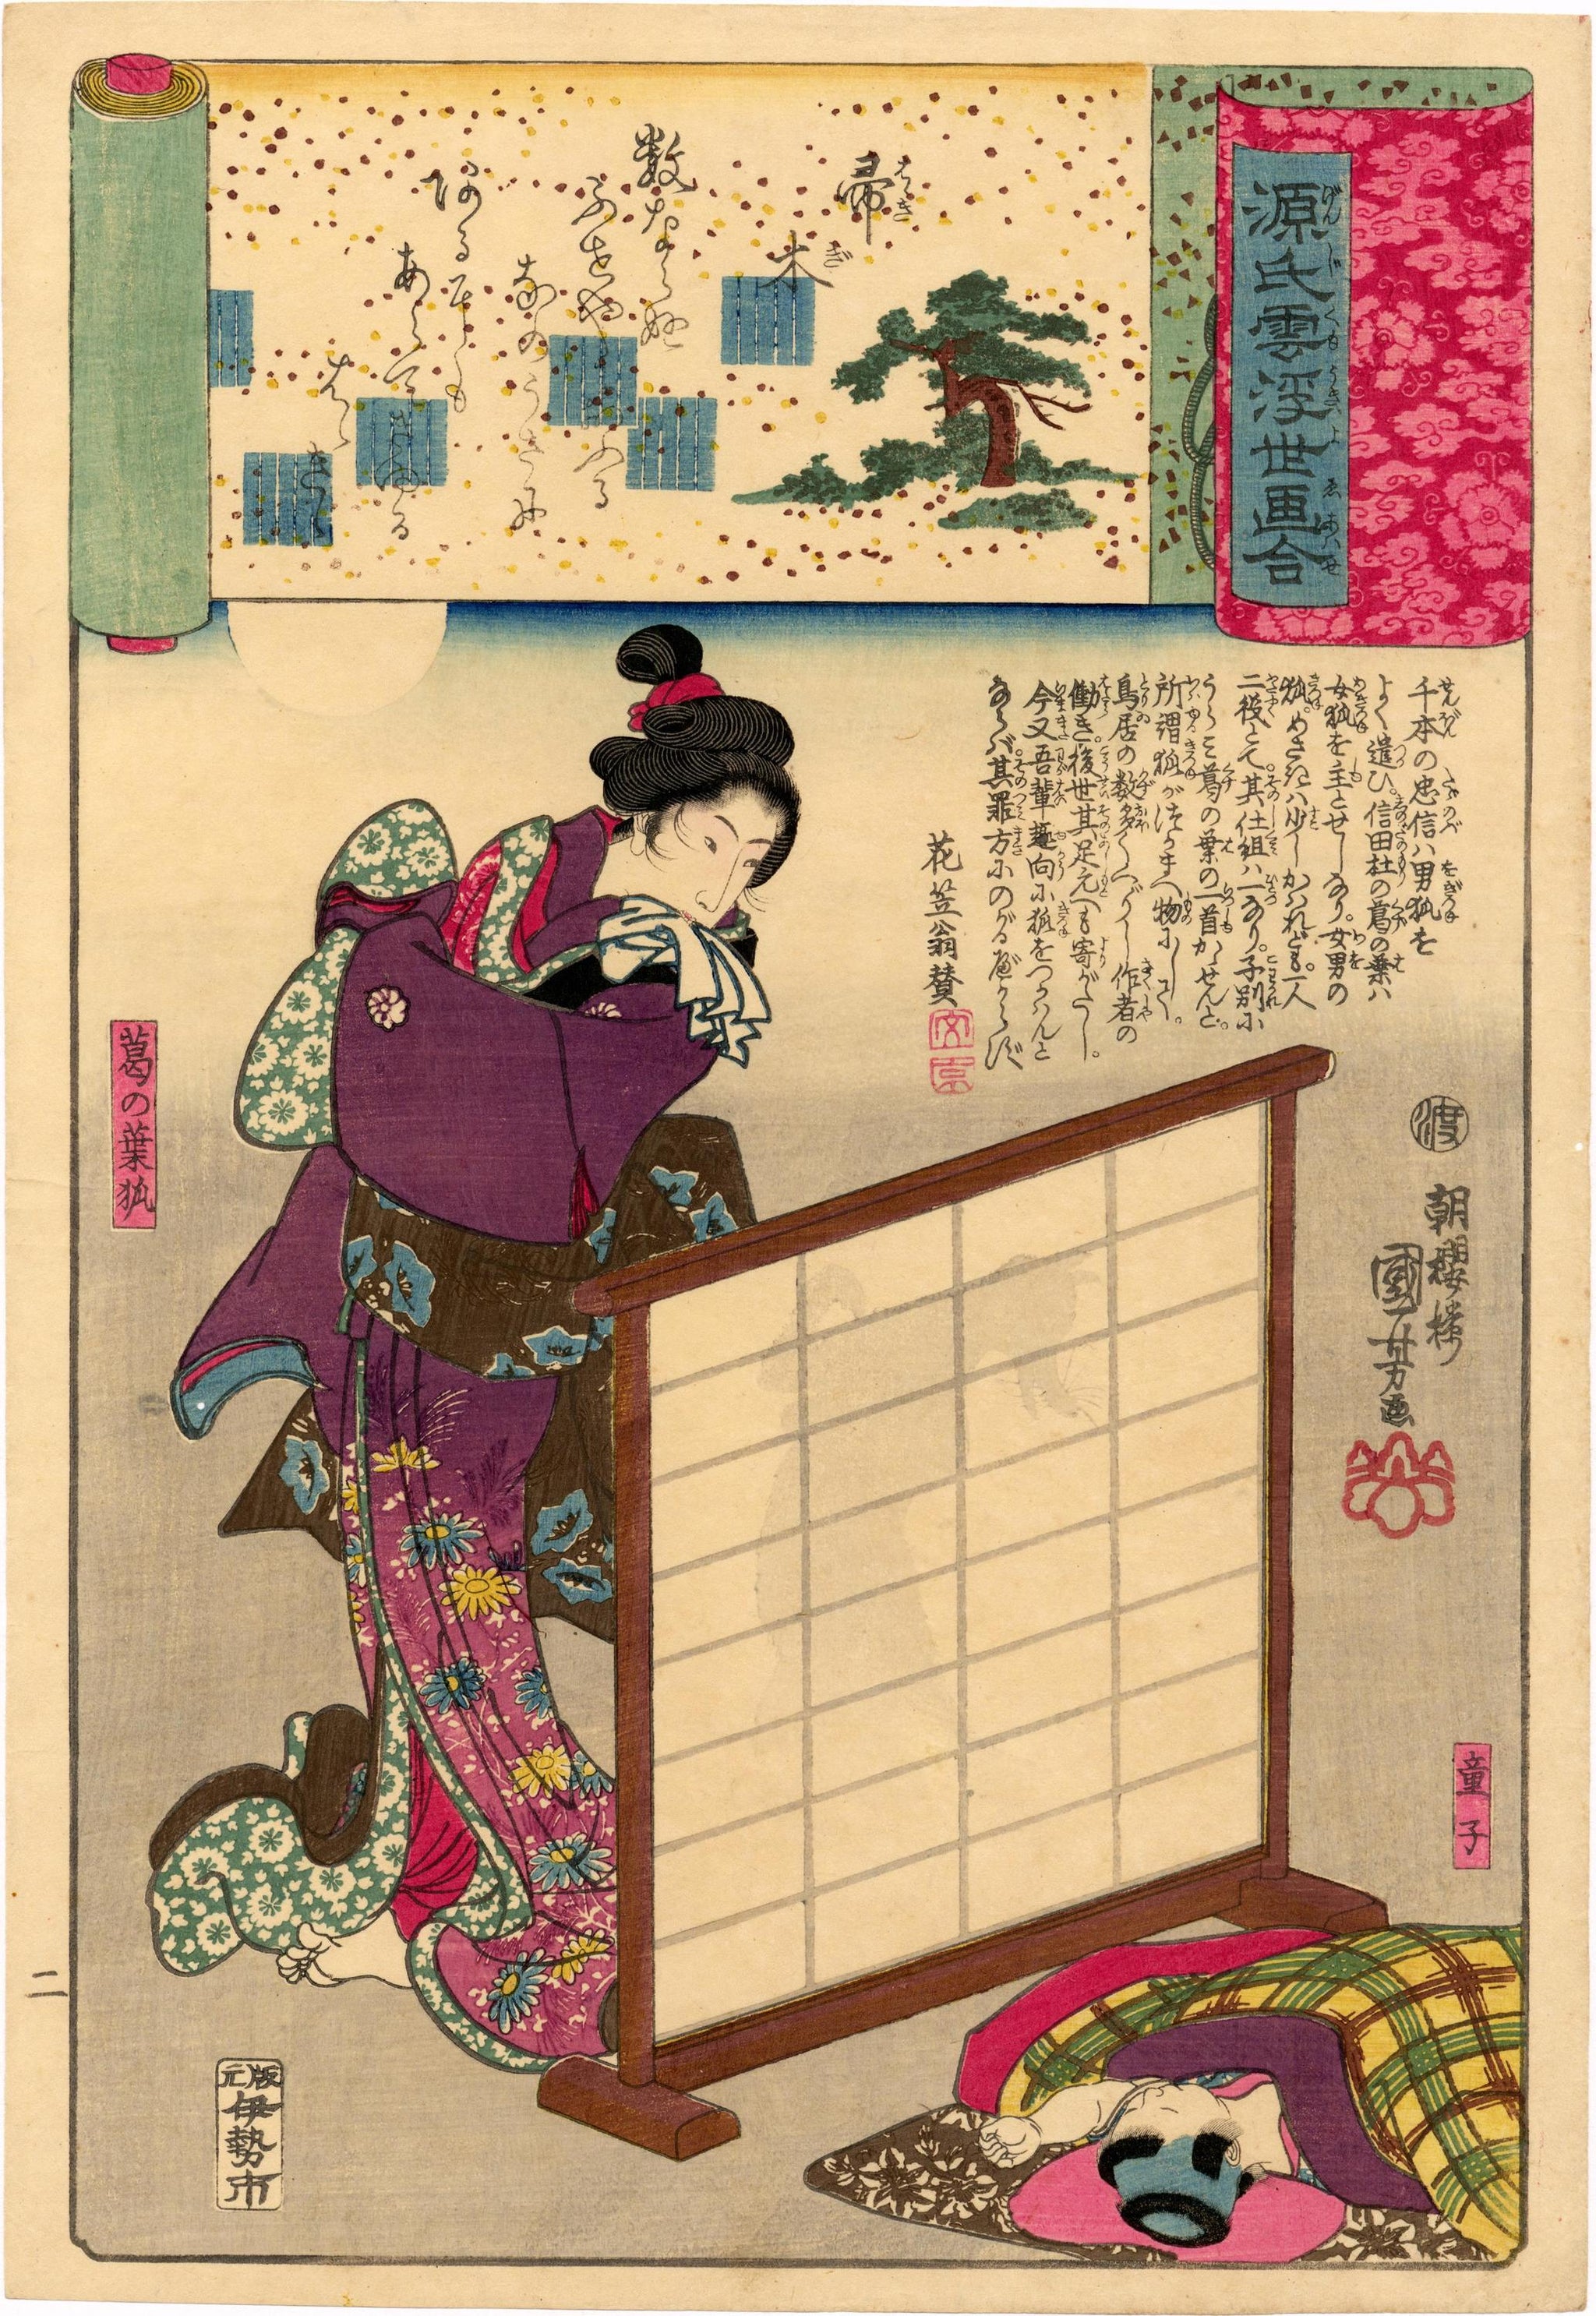 源氏雲浮世画合
げんじくもうきよゑあはせ
帚木
はゝきぎ
数ならぬ
ふせやに
おふる
なのうさに
あるにも
あらで
きゆる
はゝきゞ
千本の忠信ハ男狐を
よく遣ひ。信田杜の葛の葉ハ
女狐を主とせしなり。女男の
狐。めさきハ少しかハれども。一人
二役とて。其仕組ハ一なり。子別に
うらミ葛の葉の一首かゝせんと。
所謂狐がつかまへ物にして。
鳥居の数多くくゞりし作者の
働き。後世其足元へも寄がたし。
今又吾輩趣向に狐をつかハんと
ならバ其罪方にのがるべからず
花笠翁賛
文京
渡
朝櫻楼
國芳画
葛の葉狐
童子
二
版元
伊勢市